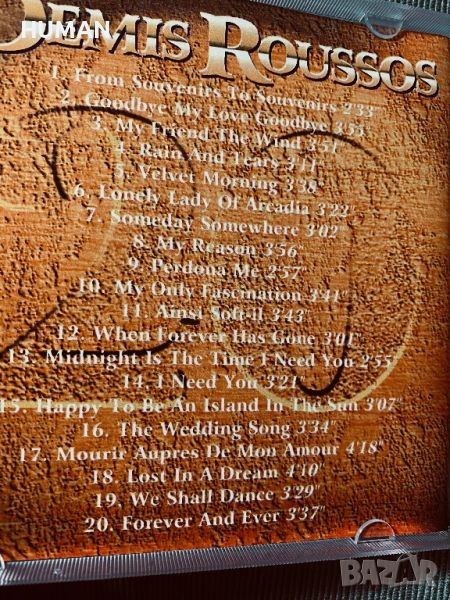 DEMIS ROUSSOS
1. From Souvenirs To Souvenirs 2'33"
2. Goodbye My Love Goodbye 3'55"
3. My Friend The Wind 3'51
4. Rain And Tears 3'11
5. Velvet Morning 3'38"
6. Lonely Lady Of Arcadia 3'22"
7. Someday Somewhere 3'02"
8. My Reason 3'56"
9. Perdona Me 2'57"
10. My Only Fascination 3'41"
11. Ainsi Soit-il 3'43"
12. When Forever Has Gone 3'01"
13. Midnight Is The Time I Need You 2'55"
14. I Need You 3'21
15. Happy To Be An Island In The Sun 3'07"
16. The Wedding Song 3'34"
17. Mourir Aupres De Mon Amour 4'18"
18. Lost In A Dream 4'10"
19. We Shall Dance 3'29"
20. Forever And Ever 3'37"
BAZAR